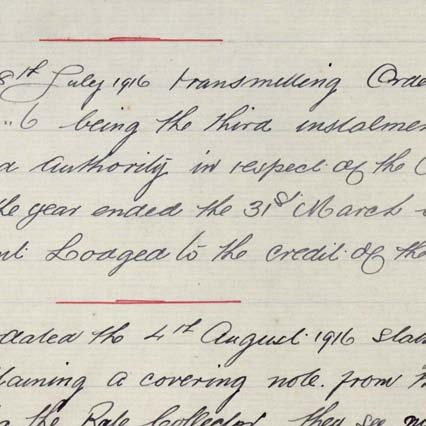 8th July 1916 transmitting Orde
..6 being the third instalmen
d Authority in respect of the C
the year ended the 31st March
nt Lodged to the credit of the
dated the 4th August 1916 stat
taining a covering note from th
the Rate Collector they see no